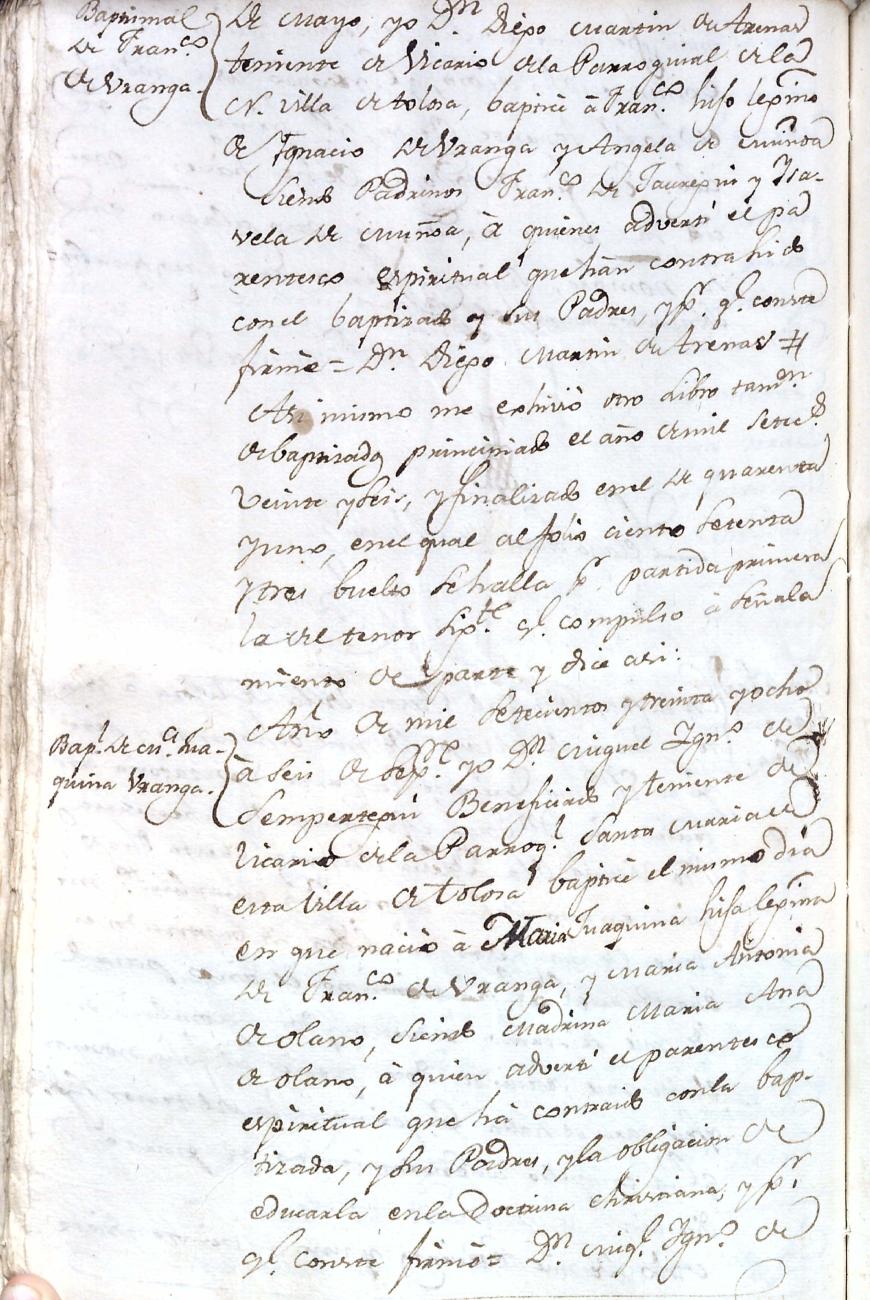 Baptismal
de Fran.co
de Vranga.
de Mayo, yo Dn. Diego Martin de Arenas
teniente de Vicario de la Parroquial de la
N. Villa de tolosa, bapticè à Fran.co hijo leximo
de Ygnacio de Vranga y Angela de Muñoa
siendo Padrinos Fran.co de Jauregui y Ysa-
vela de Muñoa, à quienes advertí el pa
rentesco espiritual que hàn contrahido
con el baptizado y sus Padres, y pr. q.e conste
firmè = Dn. Diego Martin de Arenas #
Asi mismo me exhivió otro Libro tamvn.
de baptizados principiado el año de mil setecs.
veinte y seis, y finalizado en el de quarenta
y uno, en el qual al folio ciento setenta
y tres buelto se halla pr. partida primera
la del tenor sigte. q.e compulso à señala
miento de parte y dice asi:
Bap.l de M.a Jua-
quina Vranga.
Año de mil setecientos y treinta y ocho
à seis de Sep.re yo Dn. Miguel Ygn.o de
Sempertegui Beneficiado y teniente de
Vicario de la Parroq.l Santa Maria de
esta Villa de tolosa baptice el mismo dia
en que naciò à Maria Juaquina hija lexima
de Fran.co de Vranga, y Maria Antonia
de olano, siendo Madrina Maria Ana
de olano, à quien advertí el parentesco
espiritual que hà contraido con la bap-
tizada, y sus Padres, y la obligacion de
educarla en la Doctrina christiana, y pr.
q.e conste firmò = Dn. Mig.l Ygn.o de